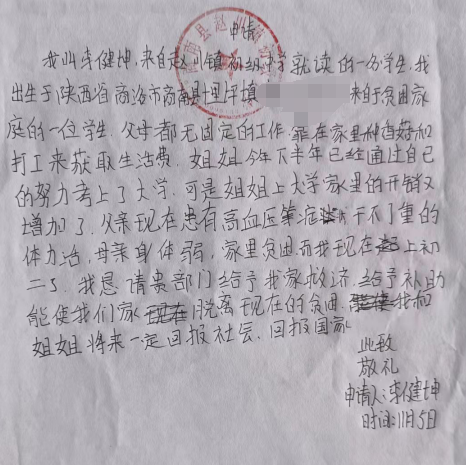 申请
我叫李健坤,来自赵川镇初级中学就读的一名学生,我
出生于陕西省商洛市商南县十里坪镇 来自贫困家
庭的一位学生,父母都无固定的工作,靠在家里种植和
打工来获取生活费,姐姐今年下半年已经通过自己
的努力考上了大学,可是姐姐上大学家里的开销又
增加了,父亲现在患有高血压等症干不了重的
体力活,母亲身体弱,家里贫困而我现在上初
二了,我恳请贵部门给予我家救济,给予补助
能使我们家脱离现在的贫困,我和
姐姐将来一定回报社会,回报国家
此致
敬礼
申请人:李健坤
时间:11月5日